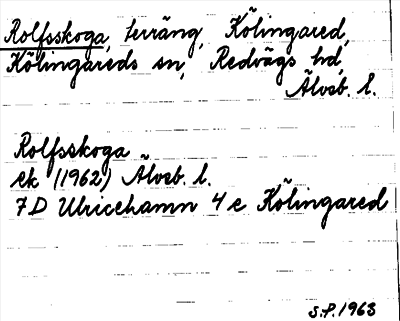 Rolfsskoga, terräng, Kölingared,
Kölingareds sn, Redvägs hd,
Älvsb. l.
Rolfsskoga
ek (1962) Älvsb. l.
7D Ulricehamn 4 e Kölingared
S.P. 1963